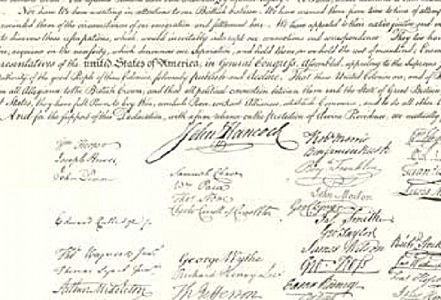 Nor have We been wanting in attentions to our Brittish brethren. We have warned them from time to time of
reminded them of the circumstances of our emigration and settlement here. We have appealed to their native justice and
to disavow these usurpations, which, would inevitably interrupt our connections and correspondence. They too have
acquiesce in the necessity, which denounces our Separation, and hold them, as we hold the rest of mankind, Enemies
resentatives of the united States of America, in General Congress, Assembled, appealing to the Supreme
authority of the good People of these Colonies, solemnly publish and declare, That these United Colonies are, and of
all Allegiance to the British Crown, and that all political connection between them and the State of Great Britain
States, they have full Power to levy War, conclude Peace, contract Alliances, establish Commerce, and to do all other
And for the support of this Declaration, with a firm reliance on the protection of divine Providence, we mutually
John Hancock
Wm Hooper
Joseph Hewes
John Penn
Edward Rutledge
Thos Heyward Junr
Thomas Lynch Junr
Arthur Middleton
Samuel Chase
Wm Paca
Thos Stone
Charles Carroll of Carrollton
George Wythe
Richard Henry Lee
Th Jefferson
Robt Morris
Benjamin Rush
Benj Franklin
John Morton
Geo Clymer
Jas Smith
Geo Taylor
James Wilson
Geo Ross
Caesar Rodney